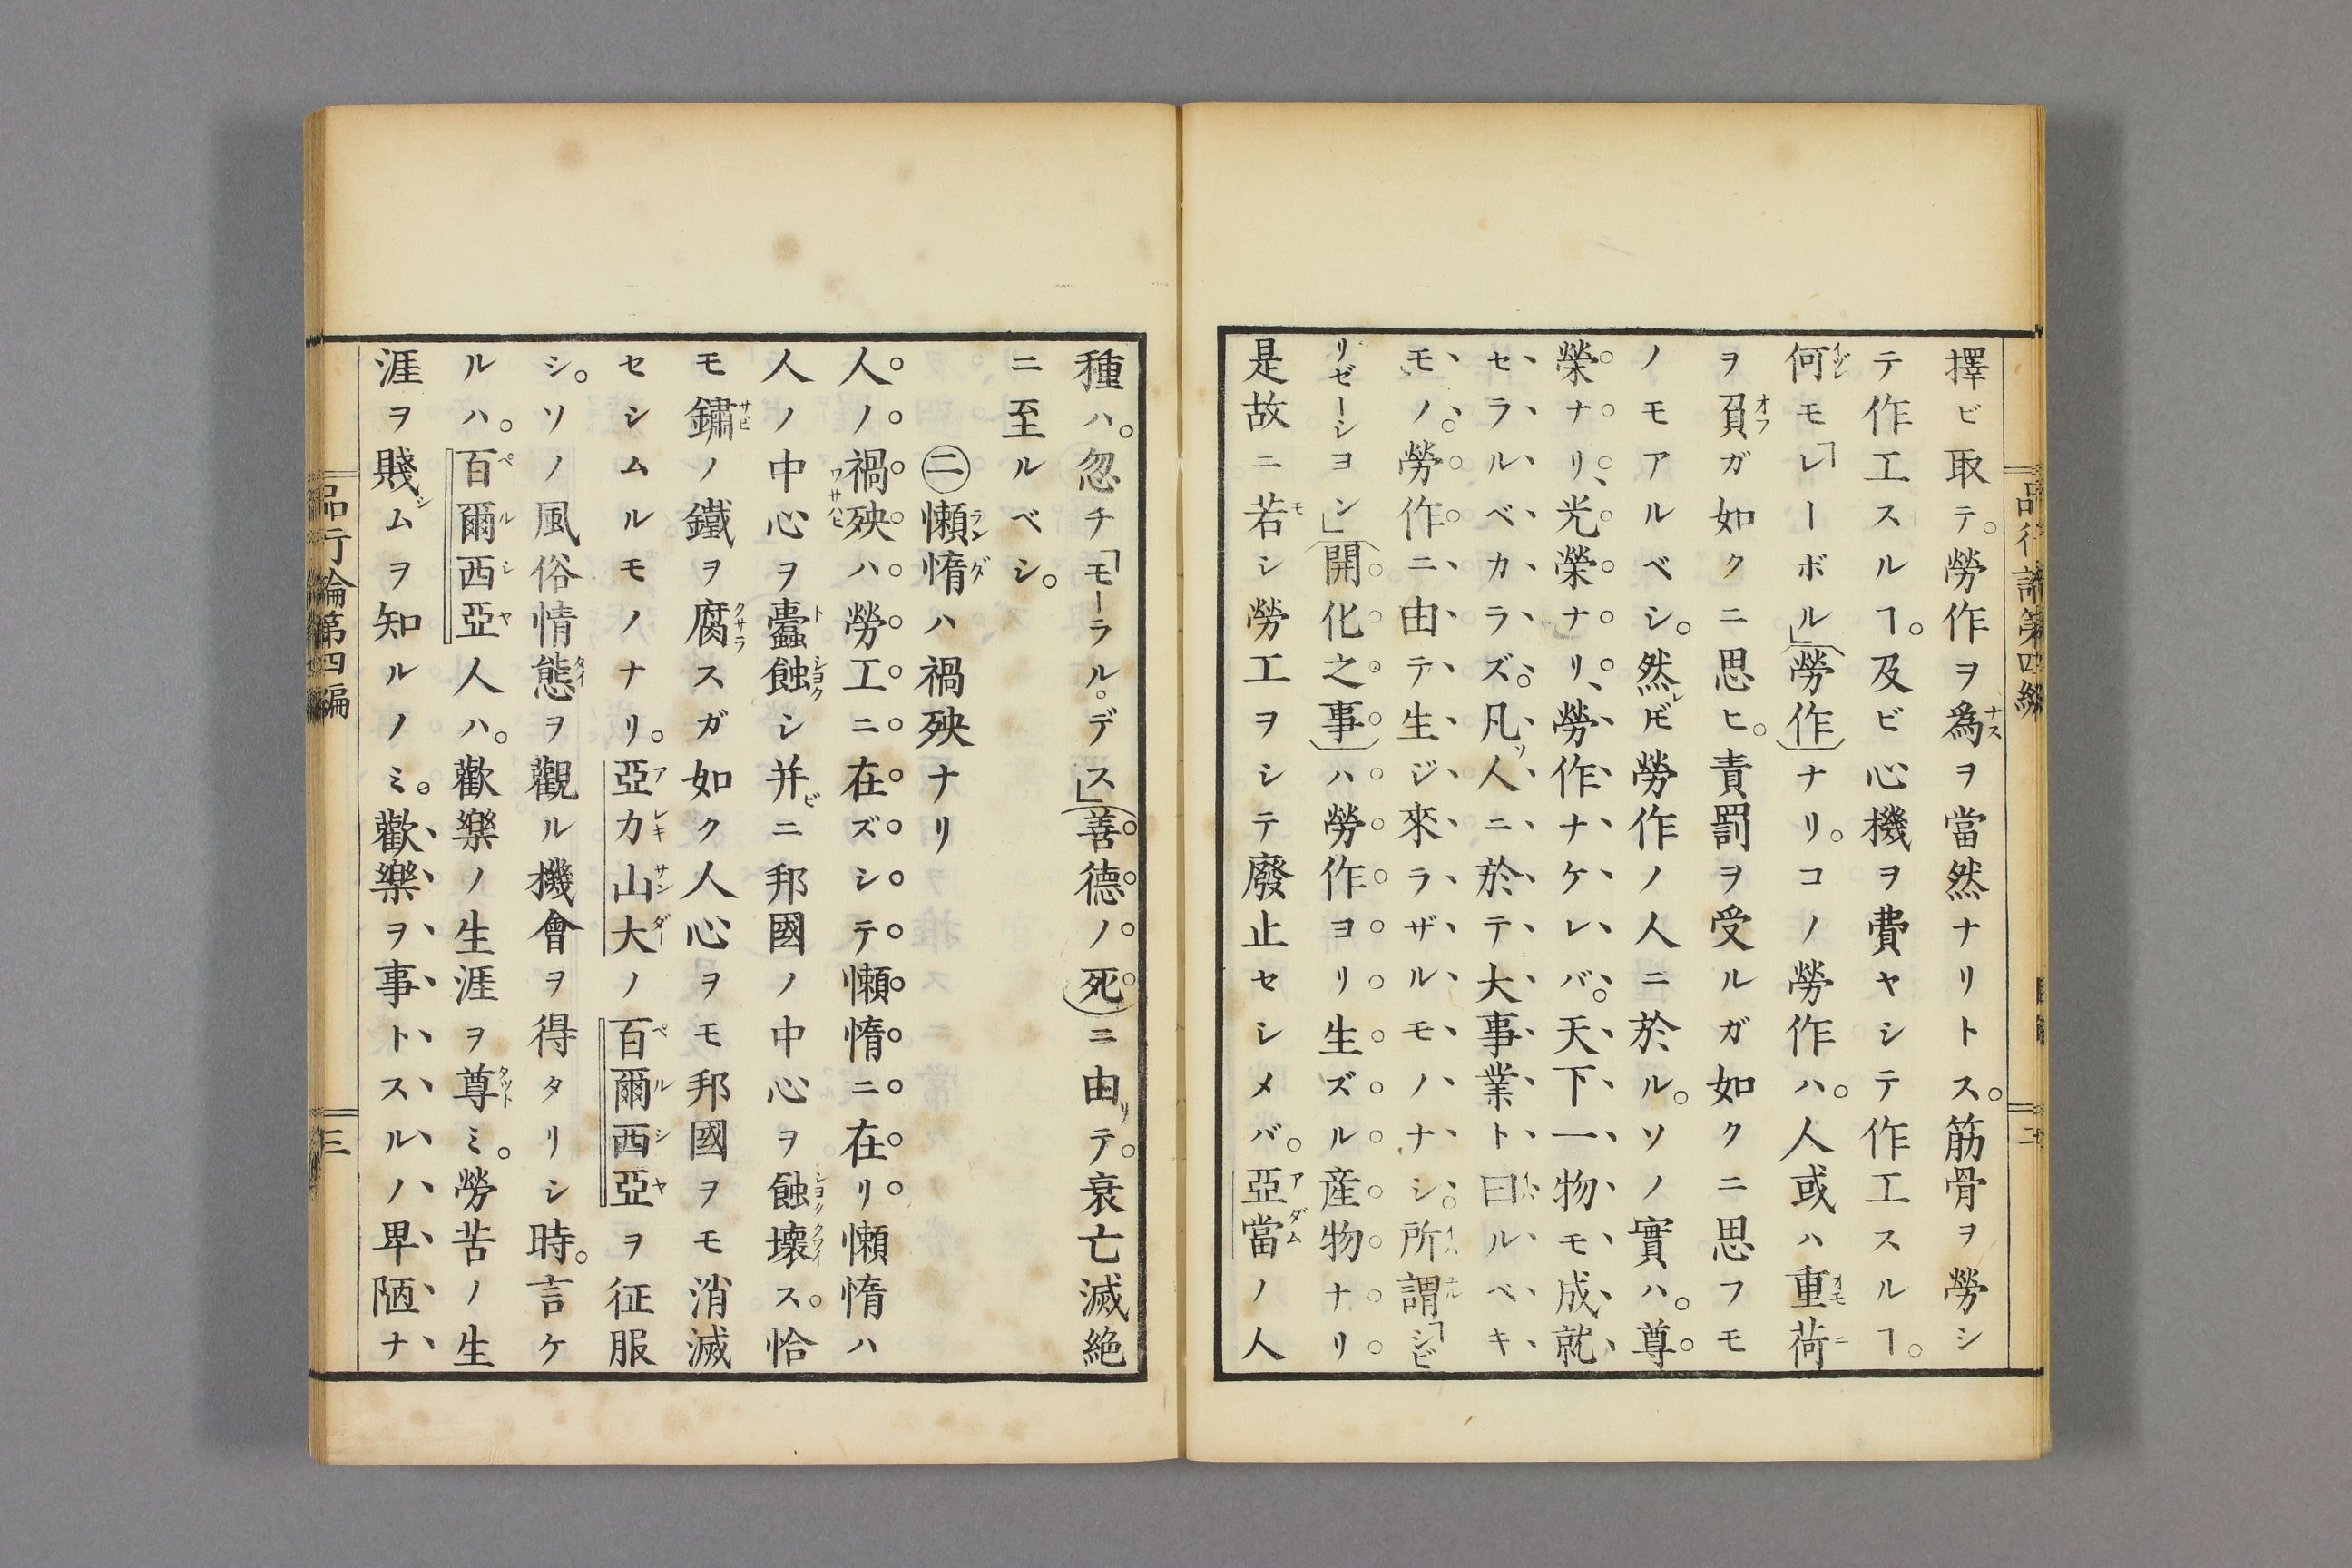 擇ビ取テ。勞作ヲ爲ヲ當然ナリトス。筋骨ヲ勞シ
テ作工スルヿ。及ビ心機ヲ費ヤシテ作工スルヿ。
何モ「レーボル」(勞作)ナリ。コノ勞作ハ。人或ハ重荷
ヲ負ガ如クニ思ヒ。責罰ヲ受ルガ如クニ思フモ
ノモアルベシ。然レ𪜈勞作ノ人ニ於ル。ソノ實ハ。尊
榮ナリ、光榮ナリ、勞作ナケレバ。天下一物モ成就
セラルベカラズ。凡ソ人ニ於テ大事業ト曰ルベキ
モノ。勞作ニ由テ生ジ來ラザルモノナシ。所謂「シビ
リゼーシヨン」(開化之事)ハ勞作ヨリ生ズル産物ナリ
是故ニ若シ勞工ヲシテ廢止セシメバ。亞當ノ人
種ハ。忽チ「モーラル。デス」(善德ノ死)ニ由リテ。衰亡滅絶
ニ至ルベシ。
㊁懶惰ハ禍殃ナリ
人ノ禍殃ハ勞工ニ在ズシテ懶惰ニ在リ懶惰ハ
人ノ中心ヲ蠹蝕シ并ビニ邦國ノ中心ヲ蝕壞ス。恰
モ鏽ノ鐵ヲ腐スガ如ク人心ヲモ邦國ヲモ消滅
セシムルモノナリ。亞力山大ノ百爾西亞ヲ征服
シ。ソノ風俗情態ヲ觀ル機會ヲ得タリシ時。言ケ
ルハ。百爾西亞人ハ。歡樂ノ生涯ヲ尊ミ。勞苦ノ生
涯ヲ賤シムヲ知ルノミ。歡樂ヲ事トスルノ卑陋ナ
品行論第四編
三